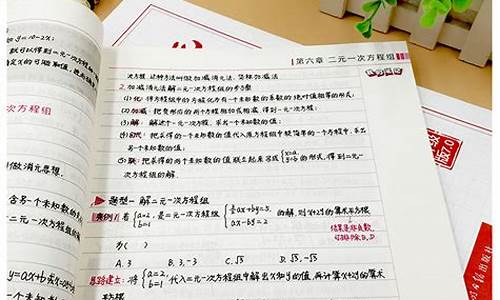 y=10-2x;
就可以得到二元一次方程
次方程组
做消元思想.
y=ax+b
第六章 二元一次方程组
次方程. 这种方法叫做加减消元法, 简称加减法
2.加减消元法解二元一次方程组的步骤
(1)化: 将方程组中的方程化为有一个未知数的系数的绝对值相等的形式;
(2)加减: 把变形后的两个方程相加或相减, 得到一元一次方程;
(3)解: 解这个一元一次方程, 求出一个未知数的值;
(4)回代: 把求得的一个未知数的值代入原方程组中较简单的一个方程中, 求出
另一个未知数的值;
(5)联: 把求得的两个未知数的值联立起来写成{x=a, y=b 的形式, 得到二元一
次方程组的解.
题型一 解二元一次方程组
案例1 若{a=2, b=1 是二元一次方程组{3/2ax+by=5, ax-by=2 的解, 则x+2y的算术平方根
为( )
结果是非负数,
可排除B,D
A. 3 B. 3, -3 C. √3 D. √3, -√3
思路建立: 将{a=2, b=1 代入二元一次方程组中解出x和y的值, 再计算x+2y的算术
平方根
版7.0